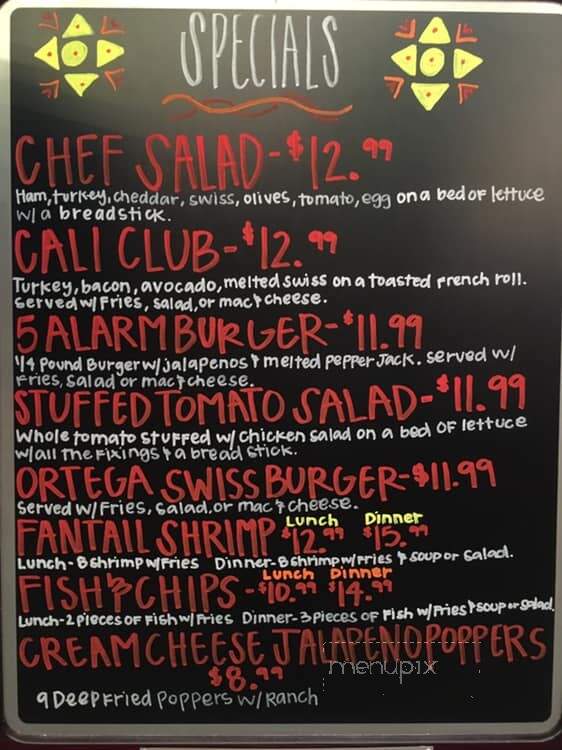 SPECIALS
CHEF SALAD - $12.99
Ham, turkey, cheddar, swiss, olives, tomato, egg on a bed of lettuce
w/ a breadstick.
CALI CLUB - $12.99
Turkey, bacon, avocado, melted swiss on a toasted french roll.
served w/ Fries, salad, or mac & cheese.
5 ALARM BURGER - $11.99
1/4 Pound Burger w/ jalapenos & melted Pepper Jack. served w/
Fries, salad or mac & cheese.
STUFFED TOMATO SALAD - $11.99
Whole tomato stuffed w/ chicken salad on a bed of lettuce
w/ all the fixings & a bread stick.
ORTEGA SWISS BURGER - $11.99
served w/ Fries, salad, or mac & cheese.
FANTAIL SHRIMP Lunch $12.99 Dinner $15.99
Lunch - 8 shrimp w/ Fries Dinner - 8 shrimp w/ Fries & soup or salad.
FISH & CHIPS - Lunch $10.99 Dinner $14.99
Lunch - 2 pieces of Fish w/ Fries Dinner - 3 pieces of Fish w/ Fries & soup or salad.
CREAM CHEESE JALAPENO POPPERS
$8.99
9 Deep Fried Poppers w/ Ranch
menupix